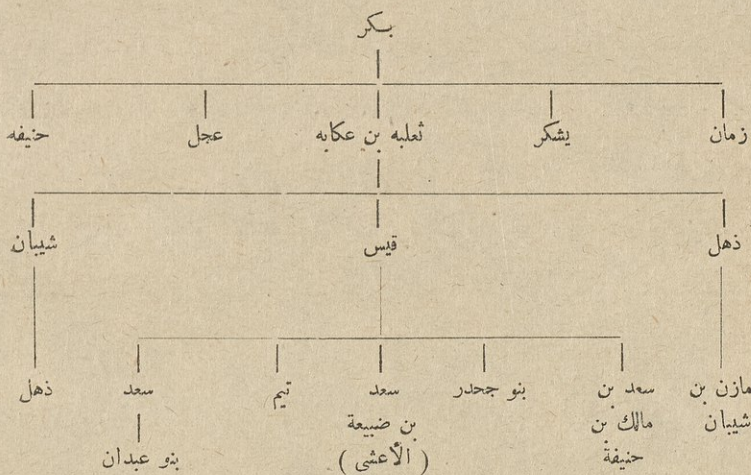 بكر
زمان يشكر ثعلبه بن عكابه عجل حنيفه
ذهل قيس شيبان
مازن بن شيبان
سعد بن مالك بن حنيفة
بنو جحدر
سعد بن ضبيعة (الأعشى)
تيم
سعد
بنو عبدان
ذهل